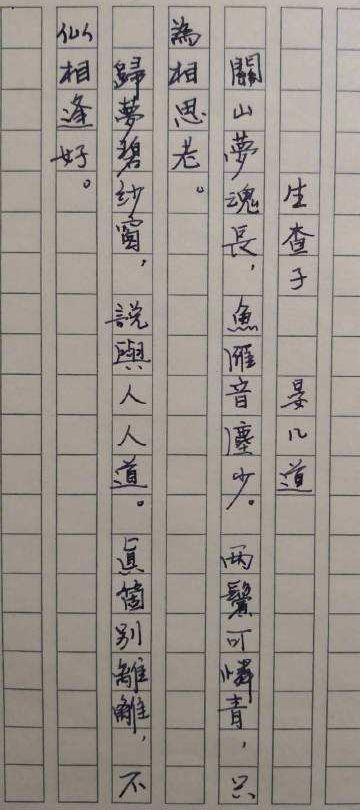 生查子 晏几道
關山夢魂長，魚雁音塵少。两鬢可憐青，只
為相思老。
歸夢碧紗窗，説與人人道。真箇别離難，不
似相逢好。